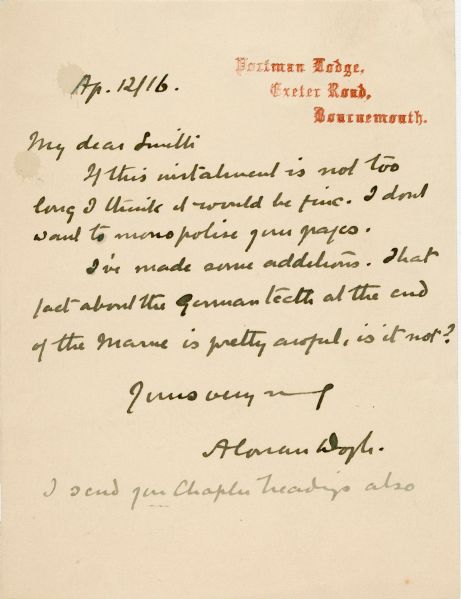 Portman Lodge,
Exeter Road,
Bournemouth.
Ap. 12/16.
My dear Smith
If this instalment is not too
long I think it would be fine. I dont
want to monopolise your pages.
I've made some additions. That
fact about the German teeth at the end
of the Marne is pretty awful, is it not?
Yours very
A Conan Doyle.
I send you Chapter headings also